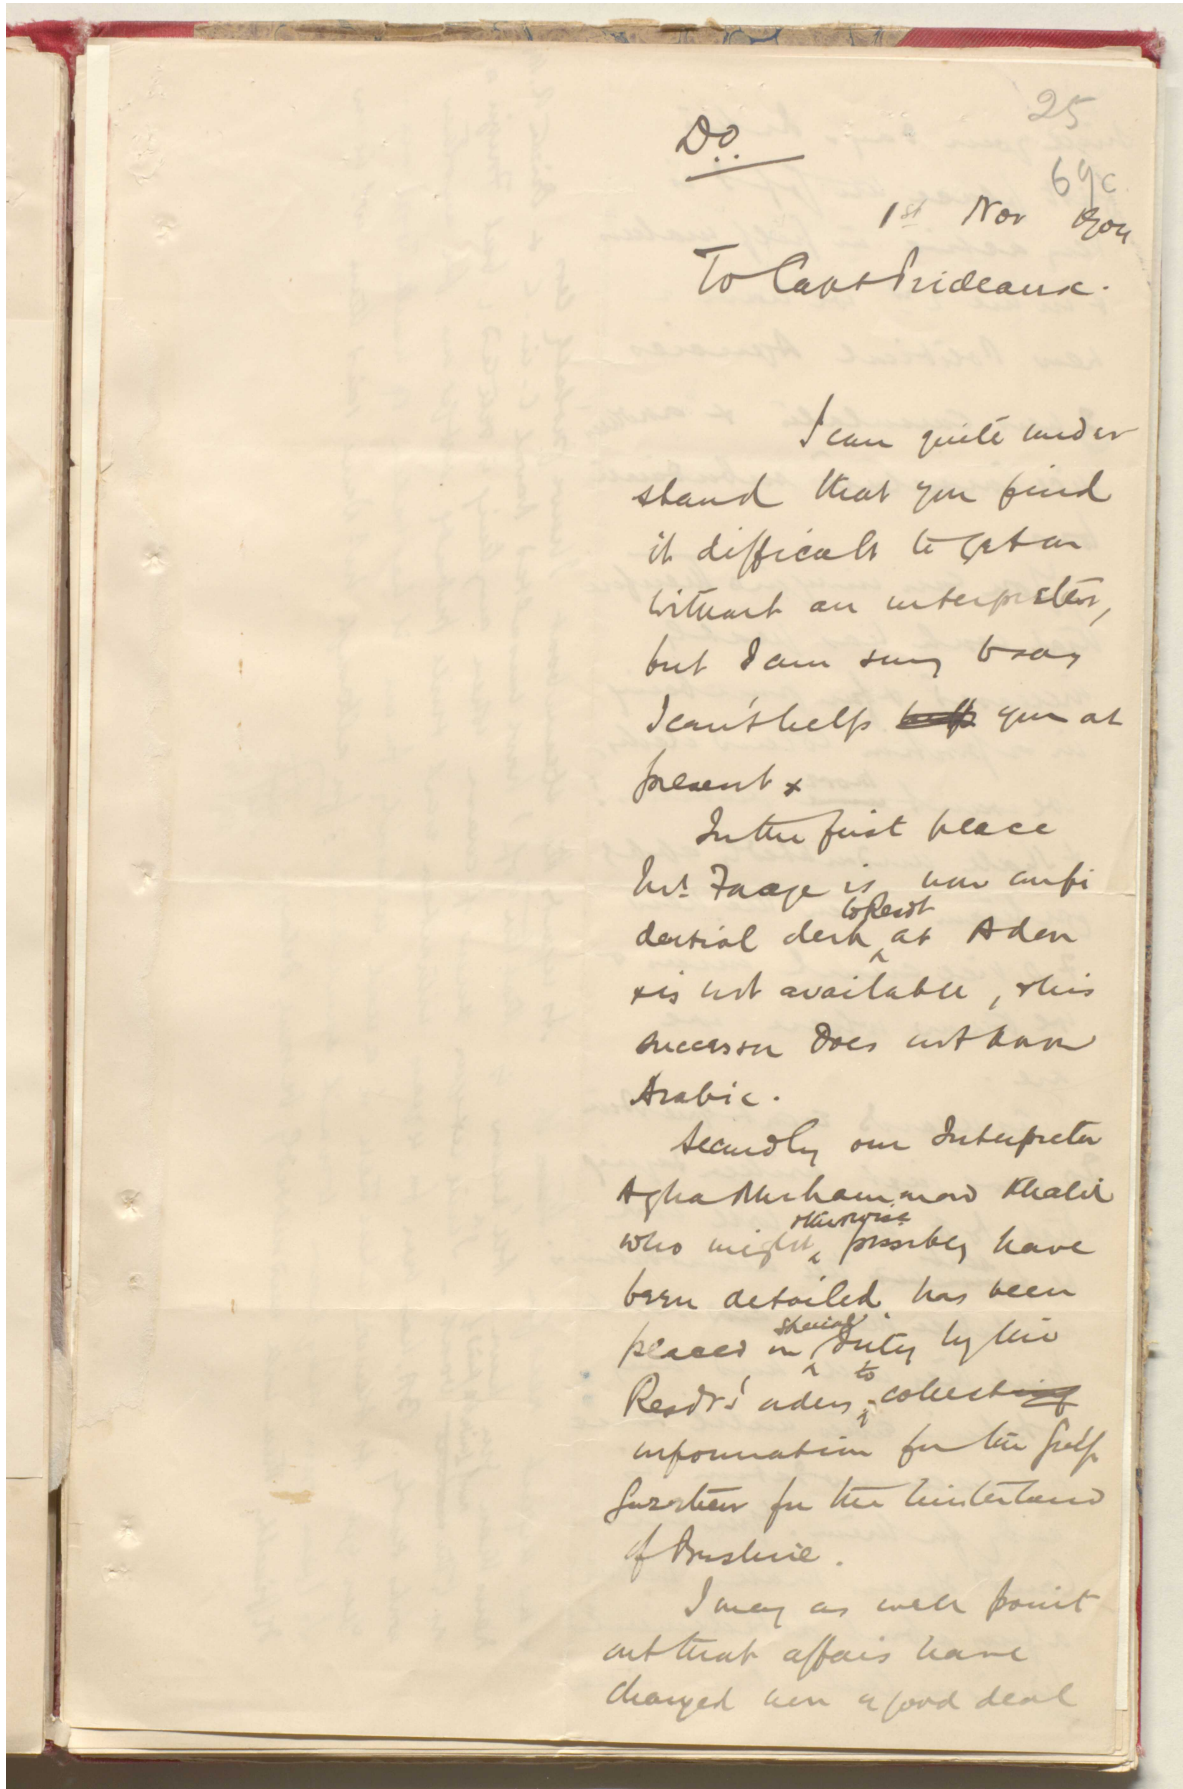 25
D.O.
69c
1st Nov 1904
To Capt Prideaux.
I can quite under
stand that you find
it difficult to get on
without an interpreter,
but I am sorry to say
I can't help help you at
present &
In the first place
Mr. Faage is now confi
dential clerk to Resdt at Aden
& is not available, & his
successor does not know
Arabic.
Secondly our Interpreter
Agha Muhammad Khalil
who might otherwise possibly have
been detailed has been
placed on special duty by his
Resdt's orders to collecting
information for the Gulf
Gazetteer for the hinterland
of Bushire.
I may as well point
out that affairs have
changed here a good deal